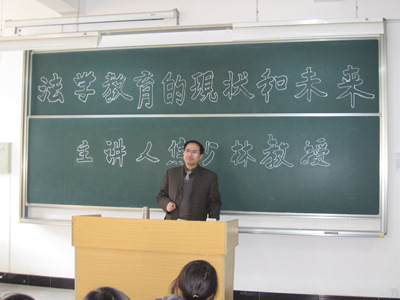 法学教育的现状和未来
主讲人焦少林教授